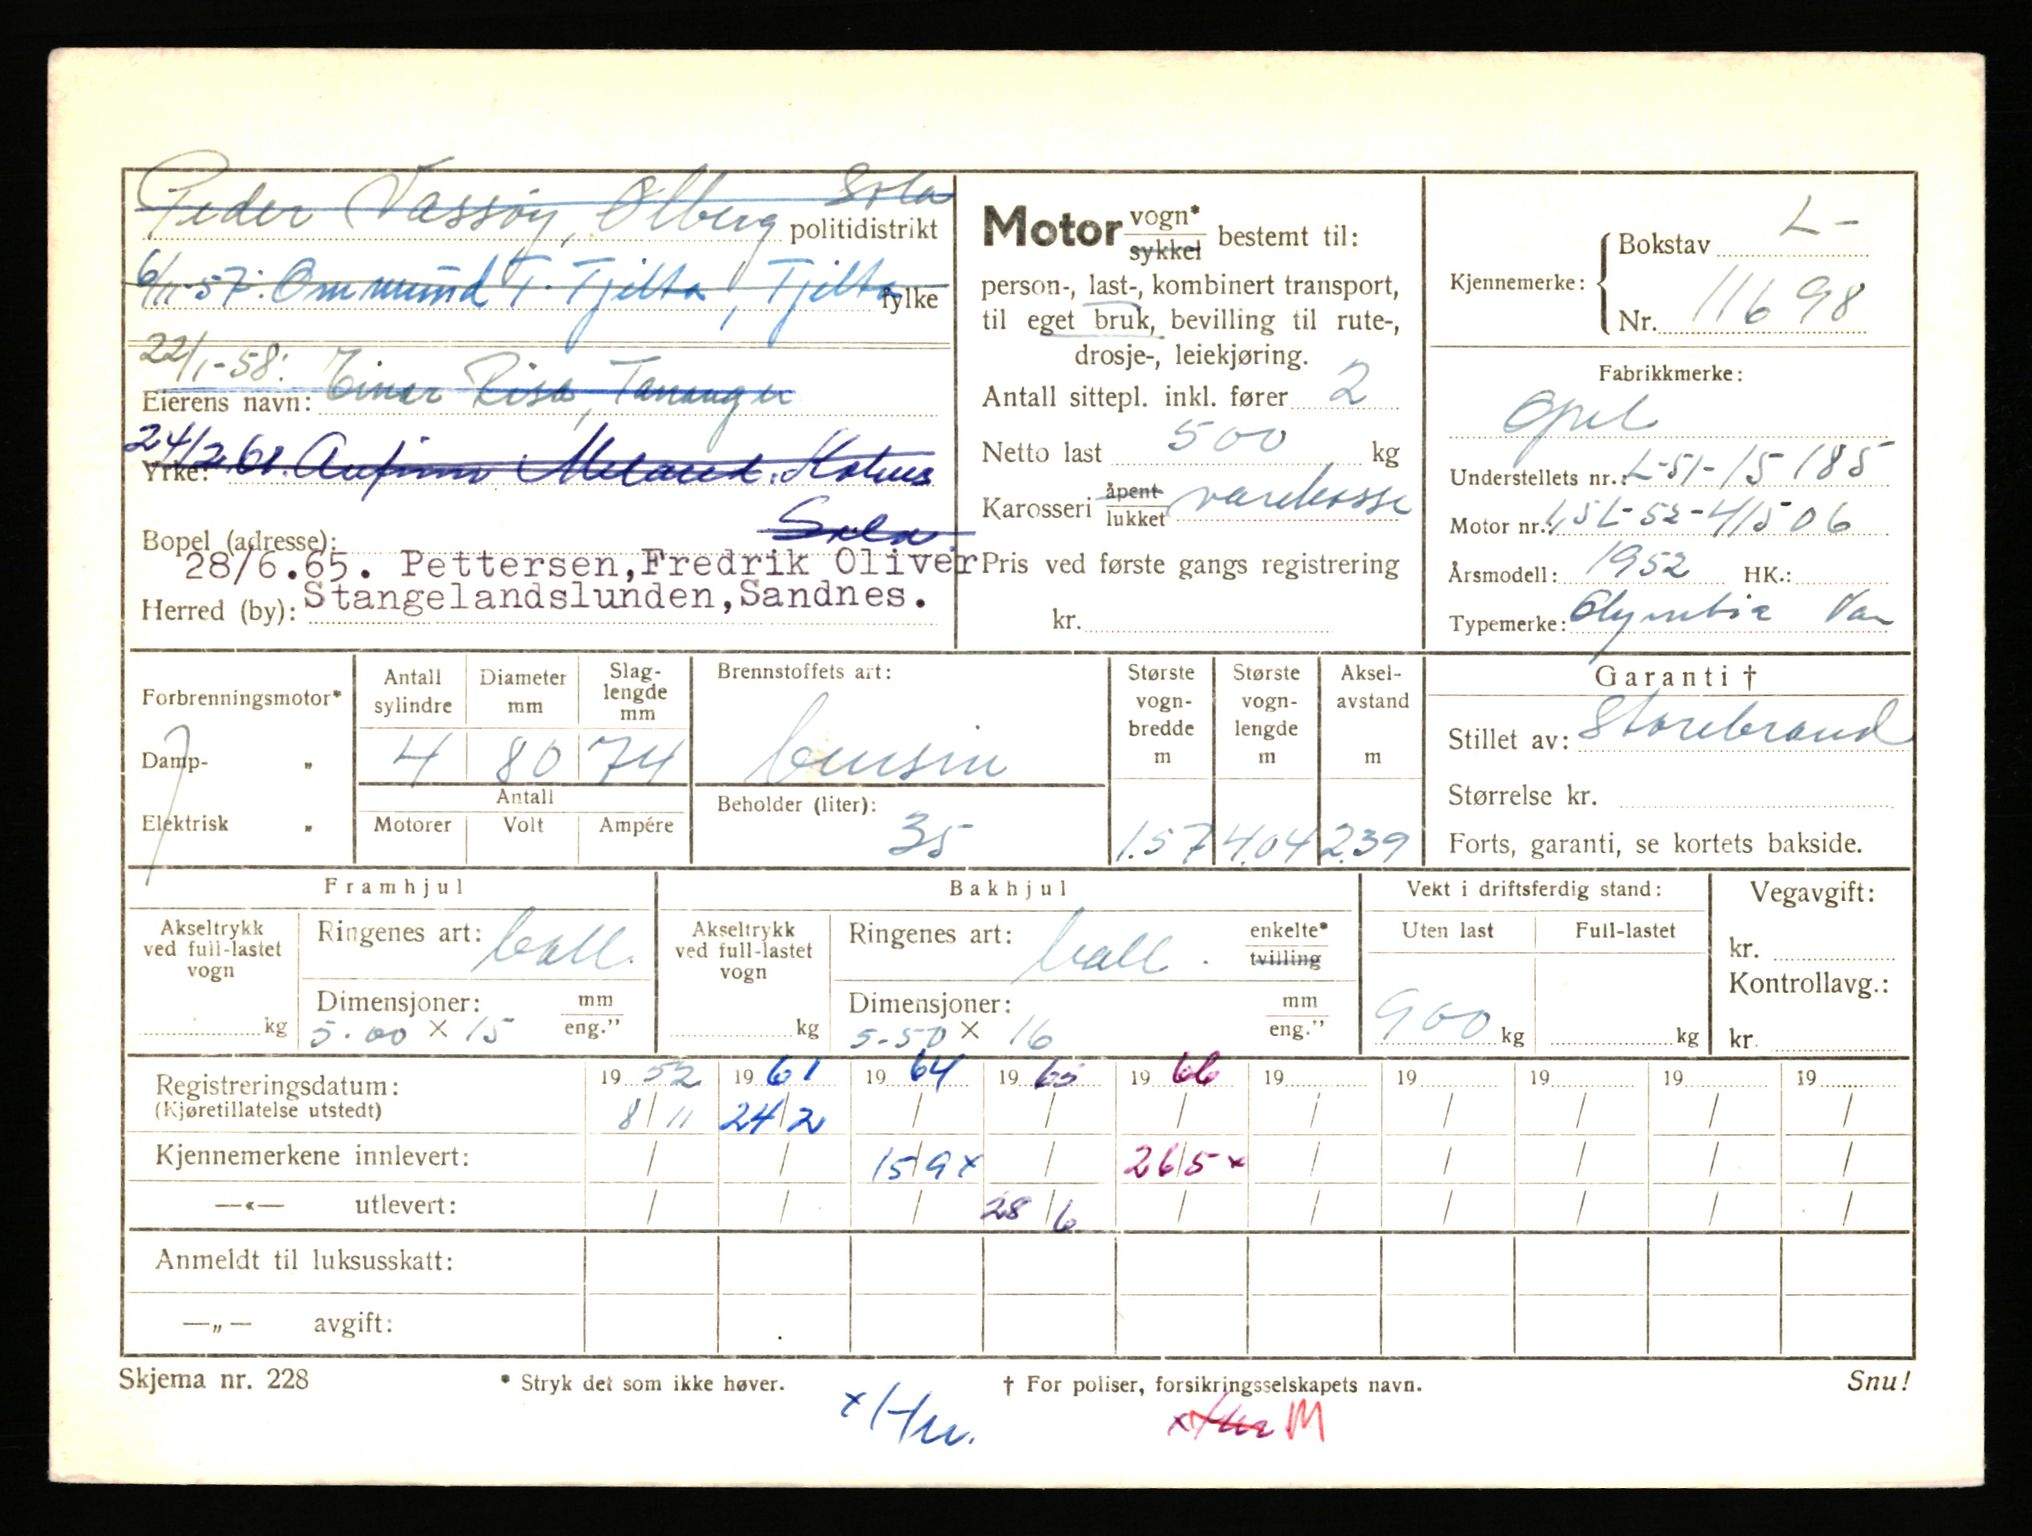 Peder Vassøy, Ølberg Sola
politidistrikt
6/11-57: Ommund T. Tjelta, Tjelta
fylke
22/1-58: Einar Risa, Tananger
Eierens navn:
24/2.61. Meland. Sola
Yrke:
Bopel (adresse):
28/6.65. Pettersen,Fredrik Oliver
Stangelandslunden,Sandnes.
Herred (by):
Motor vogn* sykkel bestemt til:
person-, last-, kombinert transport,
til eget bruk, bevilling til rute-,
drosje-, leiekjøring.
Antall sittepl. inkl. fører 2
Netto last 500 kg
Karosseri åpent lukket varekasse
Pris ved første gangs registrering
kr.
Kjennemerke: Bokstav L-
Nr. 11698
Fabrikkmerke:
Opel
Understellets nr.: L-51-15185
Motor nr.: 1,5L-52-41506
Årsmodell: 1952 HK.:
Typemerke: Olymbia Van
Forbrenningsmotor*
Damp- „
Elektrisk „
Antall sylindre Diameter mm Slag-lengde mm
4 80 74
Antall
Motorer Volt Ampére
Brennstoffets art:
bensin
Beholder (liter):
35
Største vogn-bredde m Største vogn-lengde m Aksel-avstand m
1.57 4.04 2.39
Garanti †
Stillet av: Storebrand
Størrelse kr.
Forts, garanti, se kortets bakside.
Framhjul
Akseltrykk ved full-lastet vogn
kg
Ringenes art: ball.
Dimensjoner: mm eng.”
5.00 × 15
Bakhjul
Akseltrykk ved full-lastet vogn
kg
Ringenes art: ball. enkelte* tvilling
Dimensjoner: mm eng.”
5.50 × 16
Vekt i driftsferdig stand:
Uten last Full-lastet
900 kg kg
Vegavgift:
kr.
Kontrollavg.:
kr.
Registreringsdatum: 19 52 19 61 19 64 19 65 19 66 19 19 19 19 19
(Kjøretillatelse utstedt) 8/11 24/2 / / / / / / / /
Kjennemerkene innlevert: / / 15/9 x / 26/5 x / / / / /
—«— utlevert: / / / 28/6 / / / / / /
Anmeldt til luksusskatt:
—„— avgift:
Skjema nr. 228 * Stryk det som ikke høver. † For poliser, forsikringsselskapets navn. Snu!
M